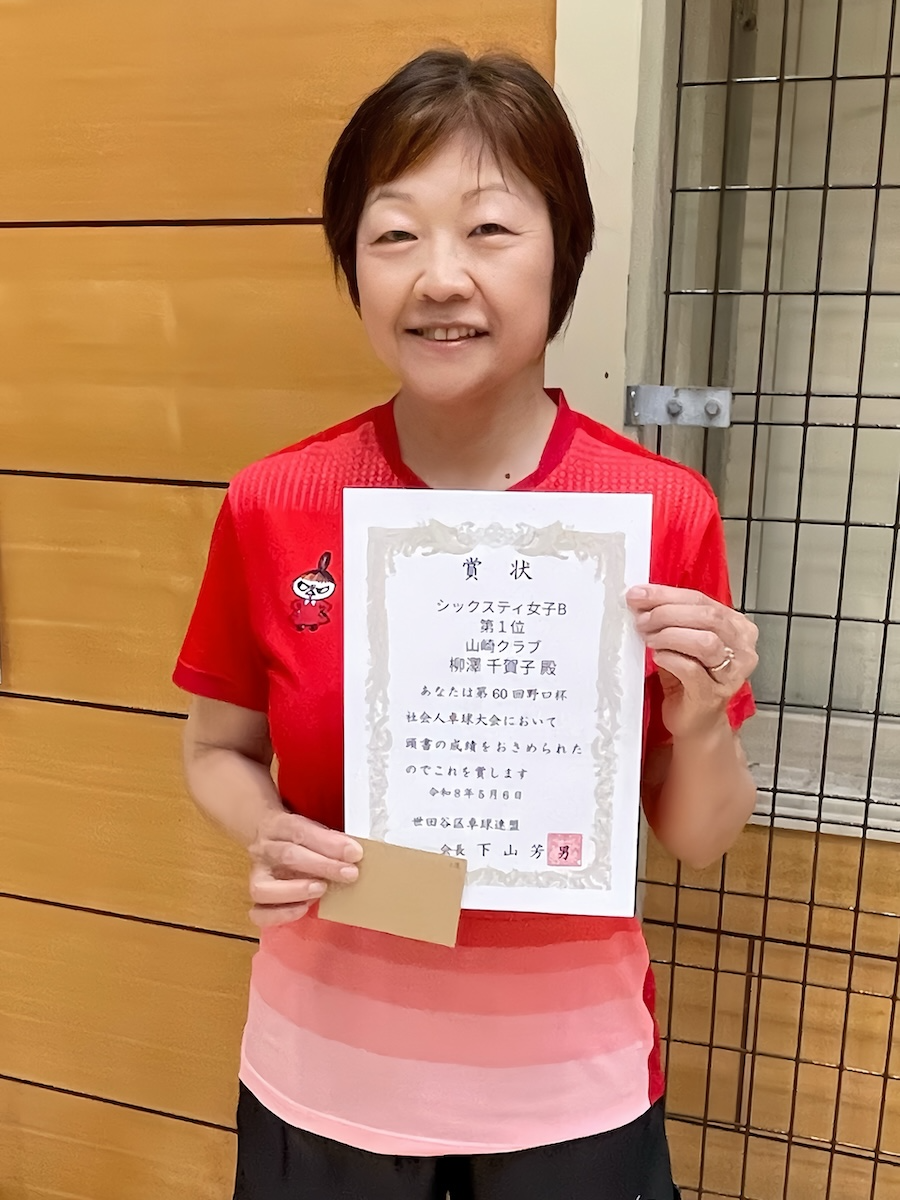 賞状
シックスティ女子B
第1位
山崎クラブ
柳澤 千賀子 殿
あなたは第60回野口杯
社会人卓球大会において
頭書の成績をおさめられた
のでこれを賞します
令和8年5月6日
世田谷区卓球連盟
会長 下山芳男